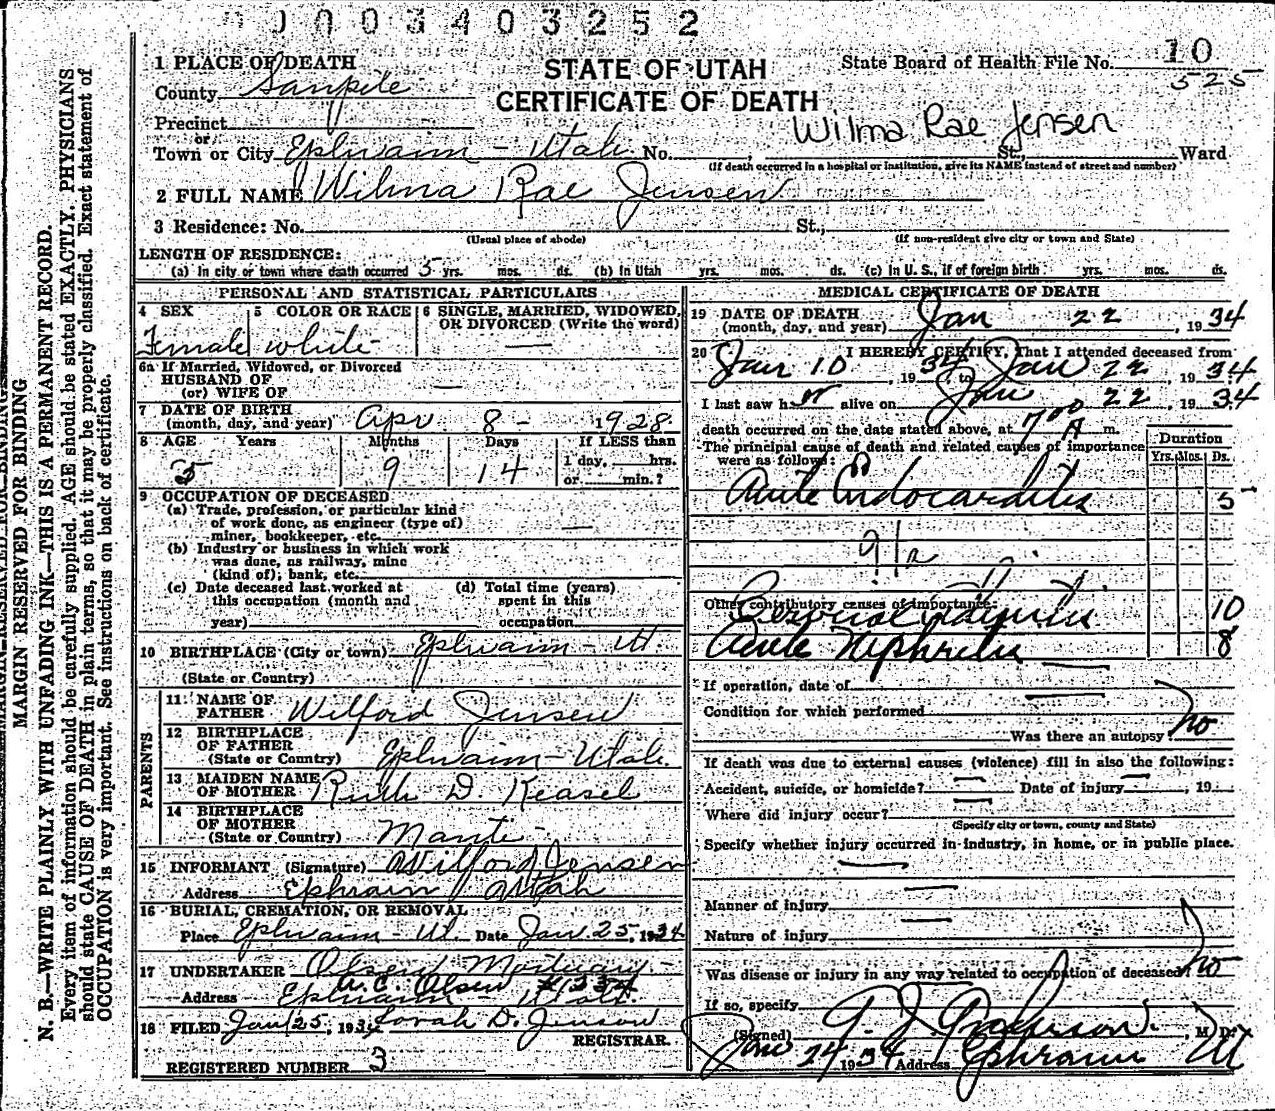 0003403252
1 PLACE OF DEATH
STATE OF UTAH
CERTIFICATE OF DEATH
State Board of Health File No. 10
525
County Sanpete
Precinct
or
Town or City Ephraim - Utah No. St., Ward
Wilma Rae Jensen
(If death occurred in a hospital or institution, give its NAME instead of street and number)
2 FULL NAME Wilma Rae Jensen
3 Residence: No. St.,
(Usual place of abode) (If non-resident give city or town and State)
LENGTH OF RESIDENCE:
(a) In city or town where death occurred 5 yrs. mos. ds. (b) In Utah yrs. mos. ds. (c) In U. S., if of foreign birth yrs. mos. ds.
PERSONAL AND STATISTICAL PARTICULARS
4 SEX 5 COLOR OR RACE 6 SINGLE, MARRIED, WIDOWED, OR DIVORCED (Write the word)
Female white —
6a If Married, Widowed, or Divorced
HUSBAND OF
(or) WIFE OF —
7 DATE OF BIRTH
(month, day, and year) Apr 8 - 1928
8 AGE Years Months Days If LESS than
1 day, hrs.
or min.?
5 9 14
9 OCCUPATION OF DECEASED
(a) Trade, profession, or particular kind
of work done, as engineer (type of)
miner, bookkeeper, etc. —
(b) Industry or business in which work
was done, as railway, mine
(kind of); bank, etc.
(c) Date deceased last worked at
this occupation (month and
year)
(d) Total time (years)
spent in this
occupation
10 BIRTHPLACE (City or town) Ephraim - Ut.
(State or Country)
PARENTS
11 NAME OF
FATHER Wilford Jensen
12 BIRTHPLACE
OF FATHER
(State or Country) Ephraim - Utah.
13 MAIDEN NAME
OF MOTHER Ruth D. Keasel
14 BIRTHPLACE
OF MOTHER
(State or Country) Manti -
15 INFORMANT (Signature) Wilford Jensen
Address Ephraim Utah
16 BURIAL, CREMATION, OR REMOVAL
Place Ephraim - Ut. Date Jan. 25, 1934
17 UNDERTAKER Olsen Mortuary -
A. C. Olsen #1334
Address Ephraim - Utah.
18 FILED Jan 25, 1934 Sorah D. Jenson
REGISTRAR.
REGISTERED NUMBER 3
MEDICAL CERTIFICATE OF DEATH
19 DATE OF DEATH
(month, day, and year) Jan 22, 1934
20 I HEREBY CERTIFY, That I attended deceased from
Jan 10, 1934, to Jan 22, 1934
I last saw her alive on Jan 22, 1934
death occurred on the date stated above, at 7 00 A m.
The principal cause of death and related causes of importance
were as follows:
Duration
Yrs. Mos. Ds.
Acute Endocarditis 5 -
91a
Other contributory causes of importance:
10
Acute Nephritis 8
If operation, date of —
Condition for which performed —
Was there an autopsy? no
If death was due to external causes (violence) fill in also the following:
Accident, suicide, or homicide? — Date of injury —, 19
Where did injury occur? —
(Specify city or town, county and State)
Specify whether injury occurred in industry, in home, or in public place.
—
Manner of injury —
Nature of injury —
Was disease or injury in any way related to occupation of deceased? no
If so, specify —
(Signed) G. J. Anderson, M. D.
Jan 24 1934 Address Ephraim Ut
MARGIN RESERVED FOR BINDING
MARGIN RESERVED FOR BINDING
N. B.—WRITE PLAINLY WITH UNFADING INK—THIS IS A PERMANENT RECORD.
Every item of information should be carefully supplied. AGE should be stated EXACTLY. PHYSICIANS
should state CAUSE OF DEATH in plain terms, so that it may be properly classified. Exact statement of
OCCUPATION is very important. See instructions on back of certificate.